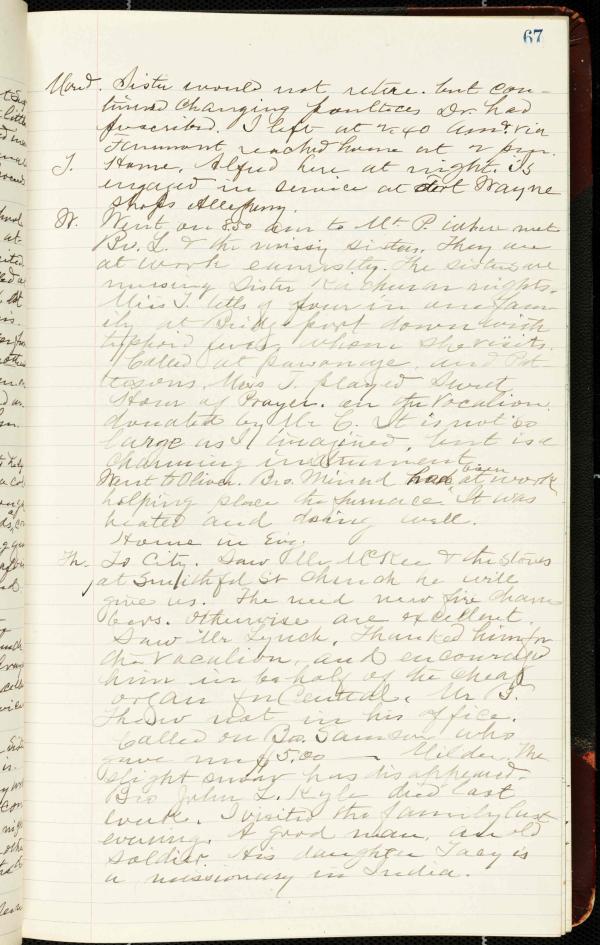 67
Mond. Sister would not retire. but con-
tinued changing poultices Dr. had
prescribed. I left at 2.40 am. & via
reached home at 2 pm.
T. Home. Alfred here at night. Is
engaged in service at Fort Wayne
Shops Allegheny.
W. Went on 8.50 am to Mt P. where met
Bro. L. & the missy sisters. They are
at work earnestly. The sisters are
nursing Sister nights.
Miss T. tells of four in one fam-
ily at Bridgeport down with
typhoid fever, whom she visits.
Called at parsonage. and Pat-
tersons. Miss T. played Sweet
Hour of Prayer. on the Vocalion
donated by Mr C. It is not so
large as I imagined, but is a
charming instrument.
Went to Oliver. Bro. had been at work
helping place the furnace. It was
heated and doing well.
Home in Eve.
Th. To City. Saw Mr McKee & the stoves
at Smithfd St Church he will
give us. The need new fire cham-
bers. otherwise are excellent.
Saw Mr Lynch. Thanked him for
the Vocalion, and encouraged
him in behalf of the cheap
organ for Central. Mr B.
Thaw not in his office.
Called on Bro. Samson who
gave me $5.00 — Milder. The
slight snow has disappeared.
Bro John L. Kyle died last
week. I visited the family last
evening. A good man, an old
soldier. His daughter is
a missionary in India.